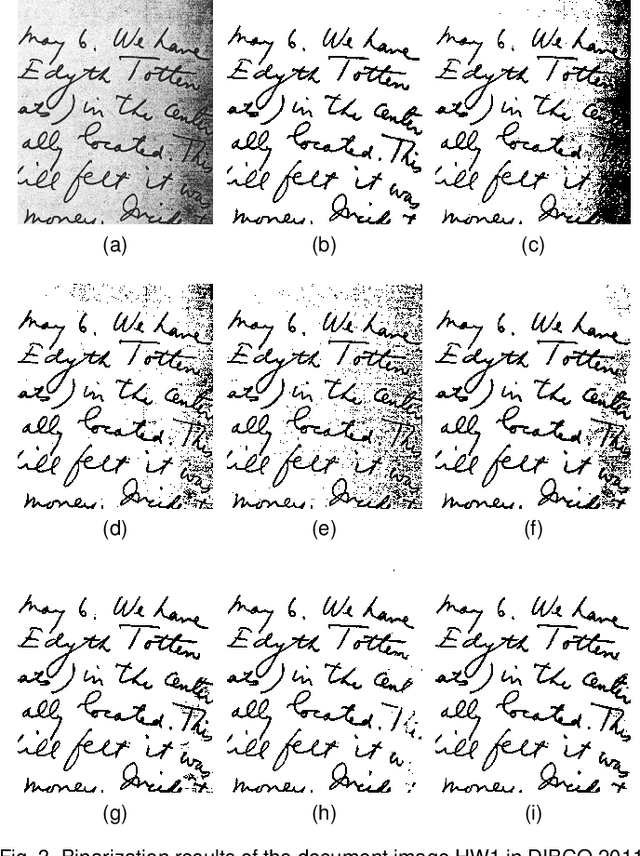 May 6. We have
Edyth Totten
ats) in the center
ally located. This
ill felt it was
money. Incide
(a)
May 6. We have
Edyth Totten
ats) in the center
ally located. This
ill felt it was
money. Incide
(b)
May 6. We have
Edyth Totten
ats) in the
ally located.
ill felt it
money. Incide
(c)
May 6. We have
Edyth Totten
ats) in the center
ally located. This
ill felt it was
money. Incide
(d)
May 6. We have
Edyth Totten
ats) in the center
ally located. This
ill felt it was
money. Incide
(e)
May 6. We have
Edyth Totten
ats) in the center
ally located. This
ill felt it was
money. Incide
(f)
May 6. We have
Edyth Totten
ats) in the center
ally located. This
ill felt it was
money. Incide
(g)
May 6. We have
Edyth Totten
ats) in the cent
ally located.
ill felt it w
money. Incide
(h)
May 6. We have
Edyth Totten
ats) in the center
ally located. This
ill felt it was
money. Incide
(i)
Fig. Binarization results of the document image HW1 in DIBCO 2011